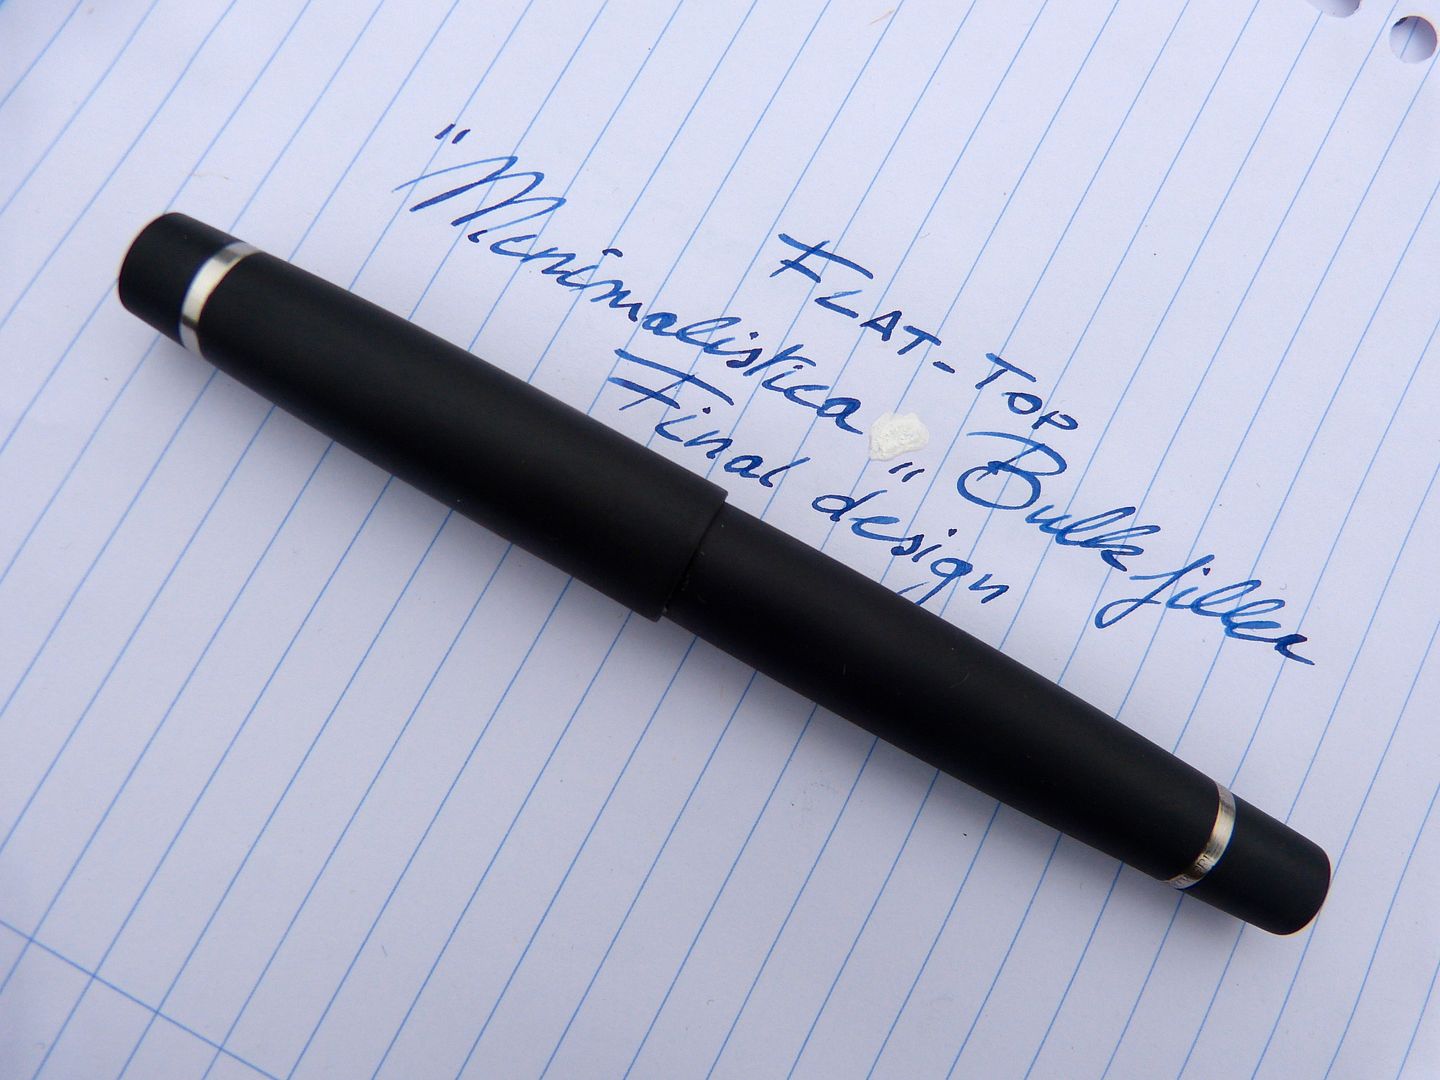 FLAT-TOP
"Minimalistica" Bulkfiller
Final design